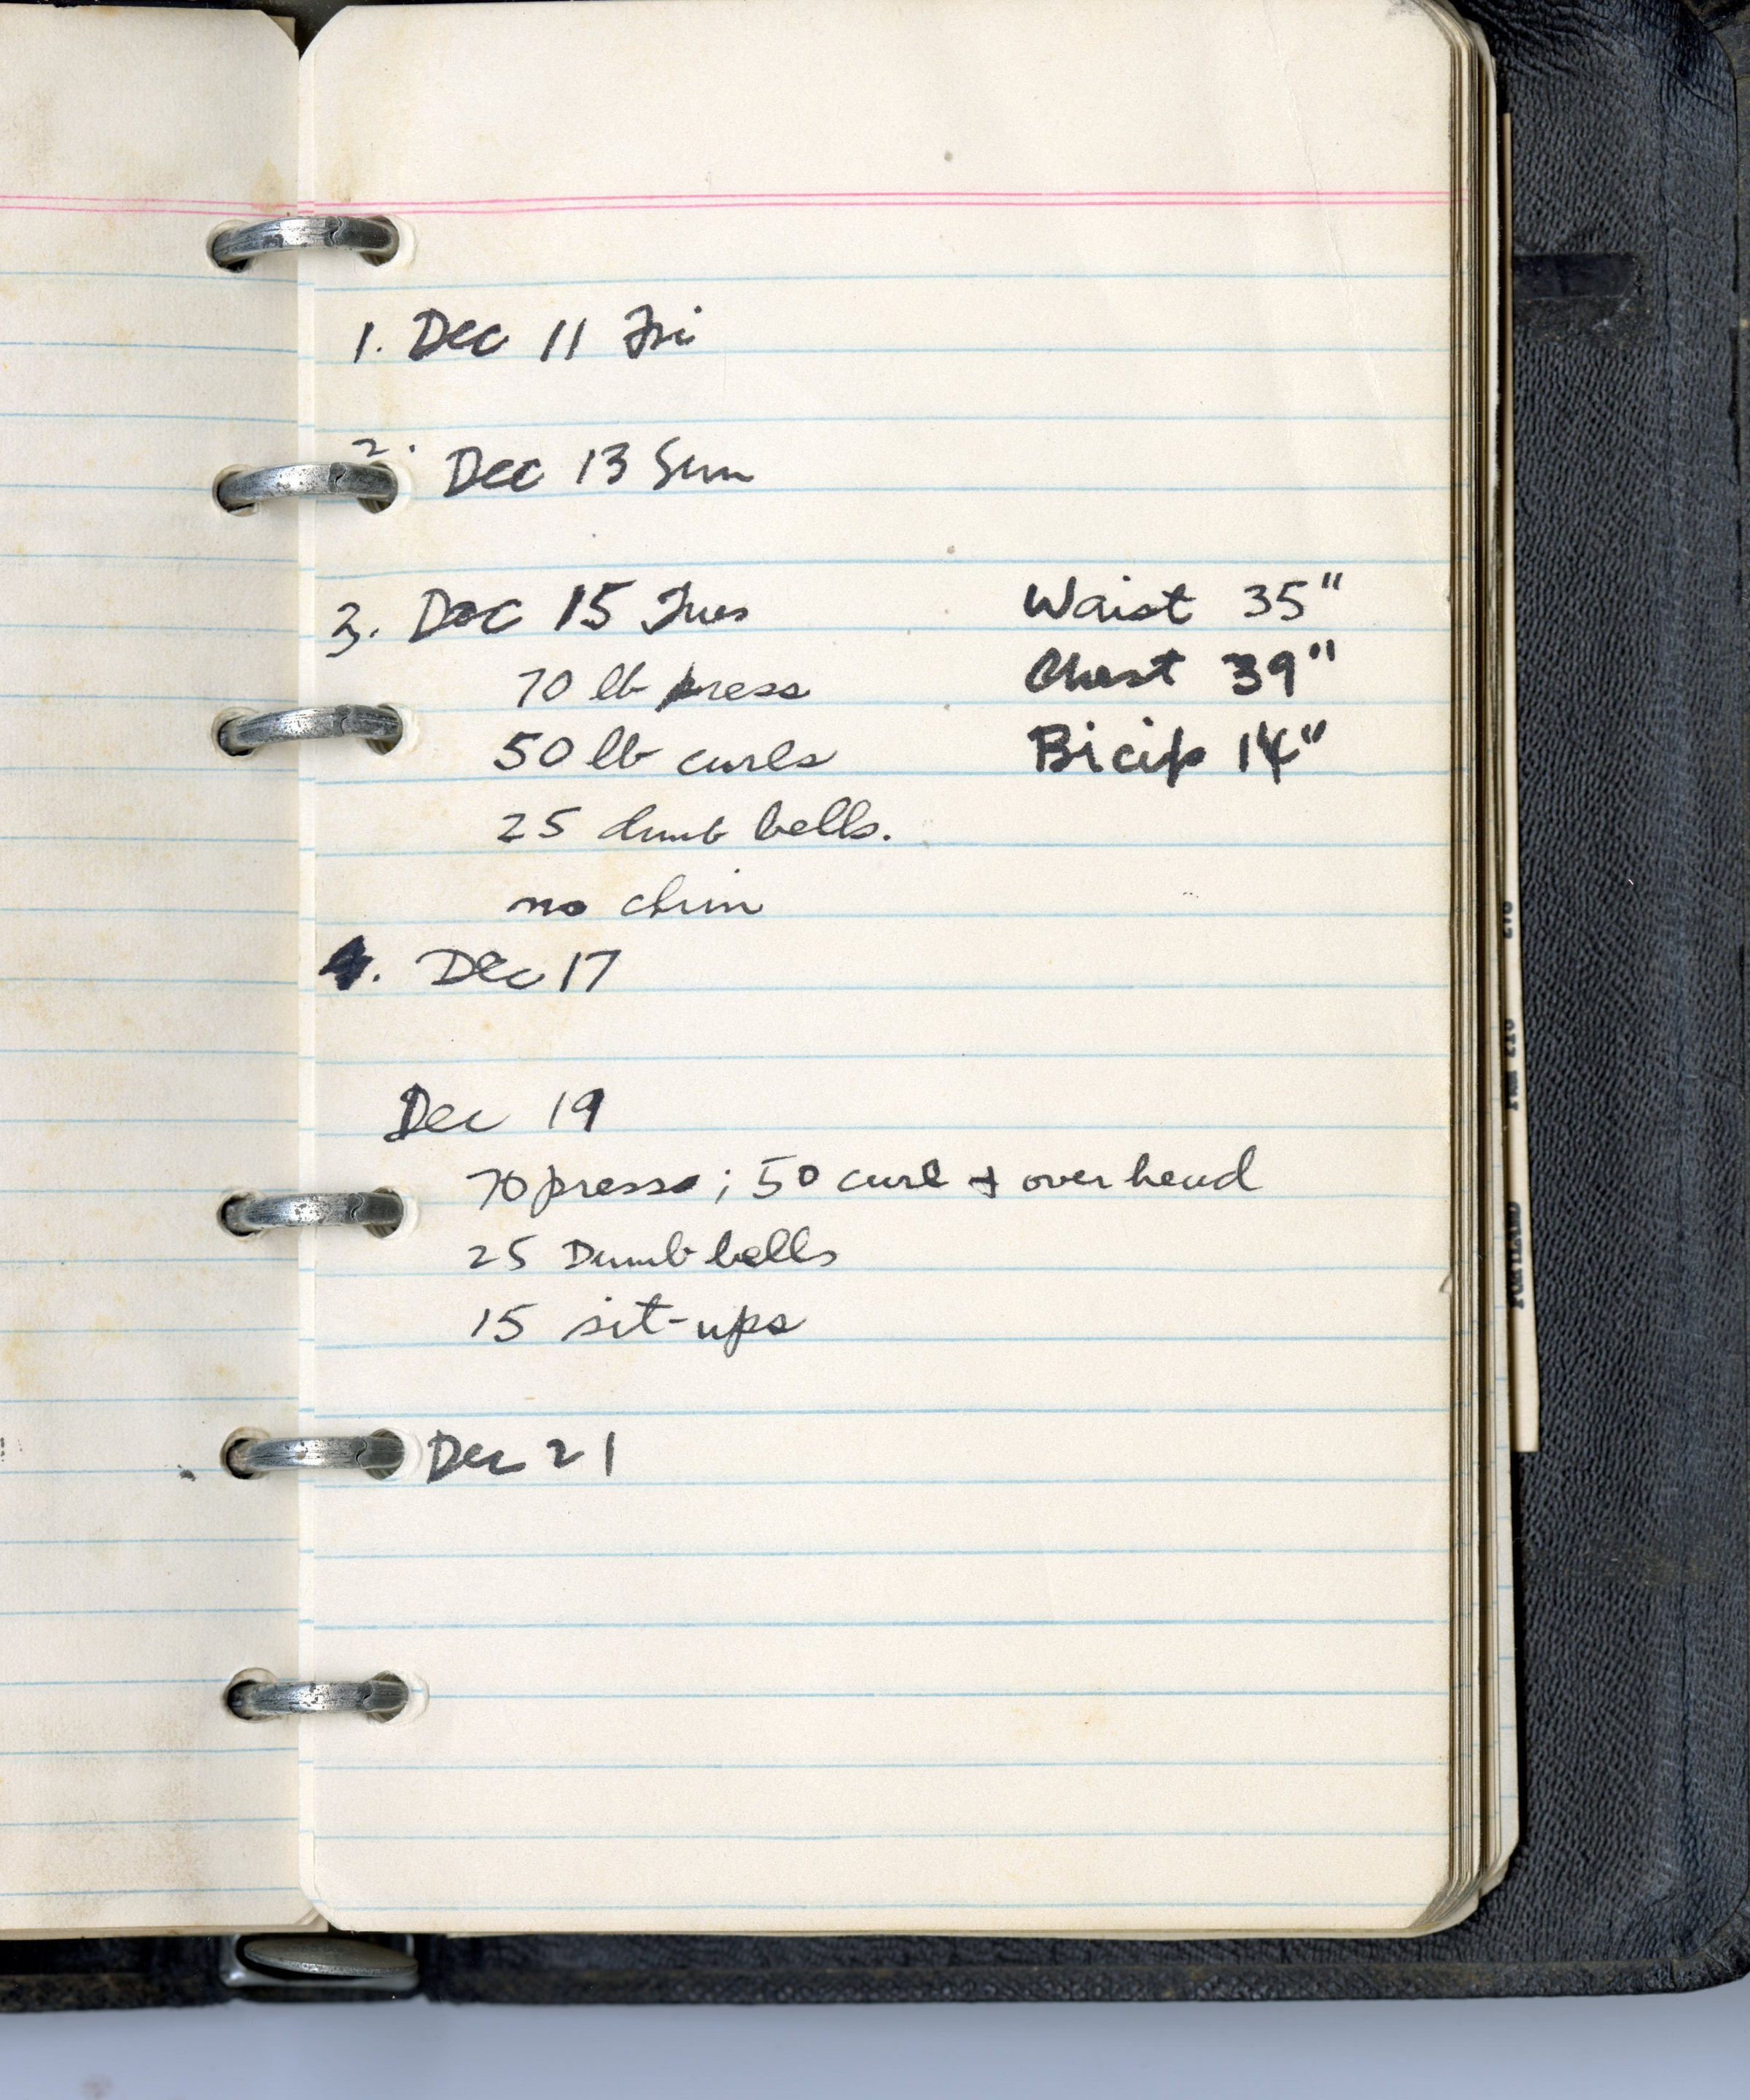 1. Dec 11 Fri
2. Dec 13 Sun
3. Dec 15 Tues
Waist 35"
70 lb press
Chest 39"
50 lb curls
Bicip 14"
25 dumb bells.
no chin
4. Dec 17
Dec 19
70 press; 50 curl + over head
25 Dumb bells
15 sit-ups
Dec 21
PORTLAND